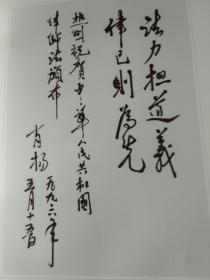 法力担道义
律己则为先
热烈祝贺中华人民共和国
律师法颁布
肖扬
一九九六年
五月十五日